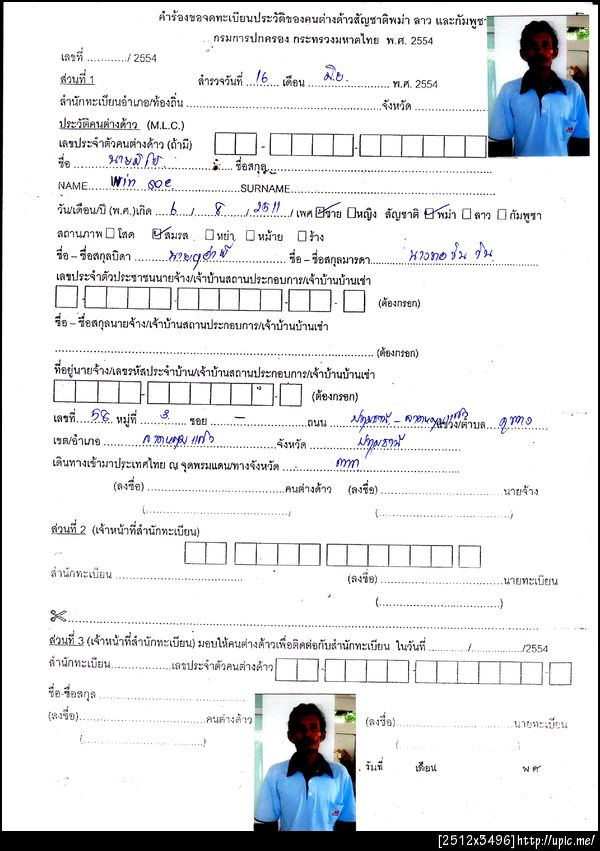 คำร้องขอจดทะเบียนประวัติของคนต่างด้าวสัญชาติพม่า ลาว และกัมพูชา
กรมการปกครอง กระทรวงมหาดไทย พ.ศ. 2554
เลขที่ ............/ 2554
ส่วนที่ 1 สำรวจวันที่ 16 เดือน มิ.ย. พ.ศ. 2554
สำนักทะเบียนอำเภอ/ท้องถิ่น ........ จังหวัด ........
ประวัติคนต่างด้าว (M.L.C.)
เลขประจำตัวคนต่างด้าว (ถ้ามี)
ชื่อ ชื่อสกุล
NAME Win SURNAME
วัน/เดือน/ปี (พ.ศ.)เกิด 6 / 8 / 2511 / เพศ ชาย หญิง สัญชาติ พม่า ลาว กัมพูชา
สถานภาพ โสด สมรส หย่า หม้าย ร้าง
ชื่อ – ชื่อสกุลบิดา ชื่อ – ชื่อสกุลมารดา
เลขประจำตัวประชาชนนายจ้าง/เจ้าบ้านสถานประกอบการ/เจ้าบ้านบ้านเช่า
(ต้องกรอก)
ชื่อ – ชื่อสกุลนายจ้าง/เจ้าบ้านสถานประกอบการ/เจ้าบ้านบ้านเช่า
(ต้องกรอก)
ที่อยู่นายจ้าง/เลขรหัสประจำบ้าน/เจ้าบ้านสถานประกอบการ/เจ้าบ้านบ้านเช่า
(ต้องกรอก)
เลขที่ 58 หมู่ที่ 3 ซอย – ถนน ปทุมธานี – ลาดหลุมแก้ว แขวง/ตำบล คูบางหลวง
เขต/อำเภอ ลาดหลุมแก้ว จังหวัด ปทุมธานี
เดินทางเข้ามาประเทศไทย ณ จุดพรมแดน/ทางจังหวัด ตาก
(ลงชื่อ) ........ คนต่างด้าว (ลงชื่อ) ........ นายจ้าง
(........) (........)
ส่วนที่ 2 (เจ้าหน้าที่สำนักทะเบียน)
สำนักทะเบียน ........ (ลงชื่อ) ........ นายทะเบียน
(........)
ส่วนที่ 3 (เจ้าหน้าที่สำนักทะเบียน) มอบให้คนต่างด้าวเพื่อติดต่อกับสำนักทะเบียน ในวันที่ ......../......../2554
สำนักทะเบียน ........ เลขประจำตัวคนต่างด้าว
ชื่อ-ชื่อสกุล ........
(ลงชื่อ) ........ คนต่างด้าว (ลงชื่อ) ........ นายทะเบียน
(........) (........)
วันที่ เดือน พ ศ
[2512x3496]http://upic.me/